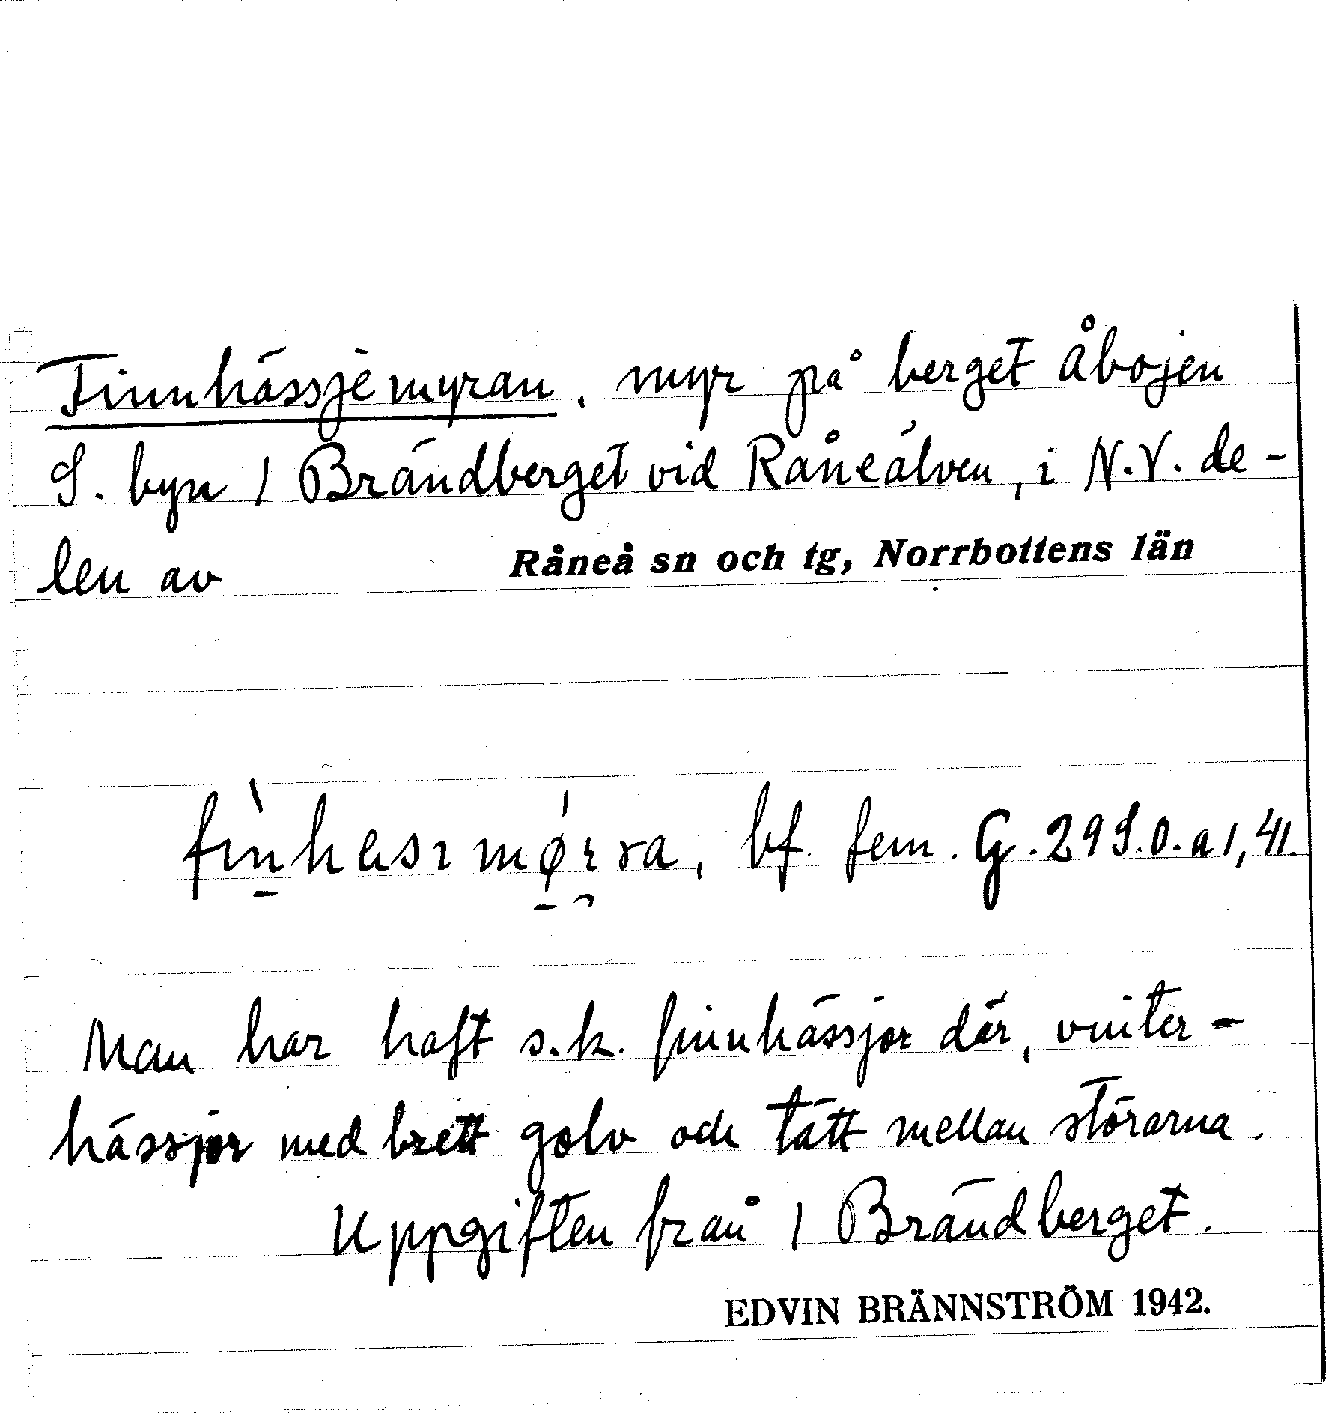 Finnhässjemyran, myr på berget Åbojen
S. byn 1 Brändberget vid Råneälven, i N.V. de-
len av Råneå sn och tg, Norrbottens län
bf. fem. G. 29 S.O. a 1, 41.
Man har haft s.k. finnhässjor där, vinter-
hässjor med brett golv och tätt mellan störarna.
Uppgiften från 1 Brändberget.
EDVIN BRÄNNSTRÖM 1942.